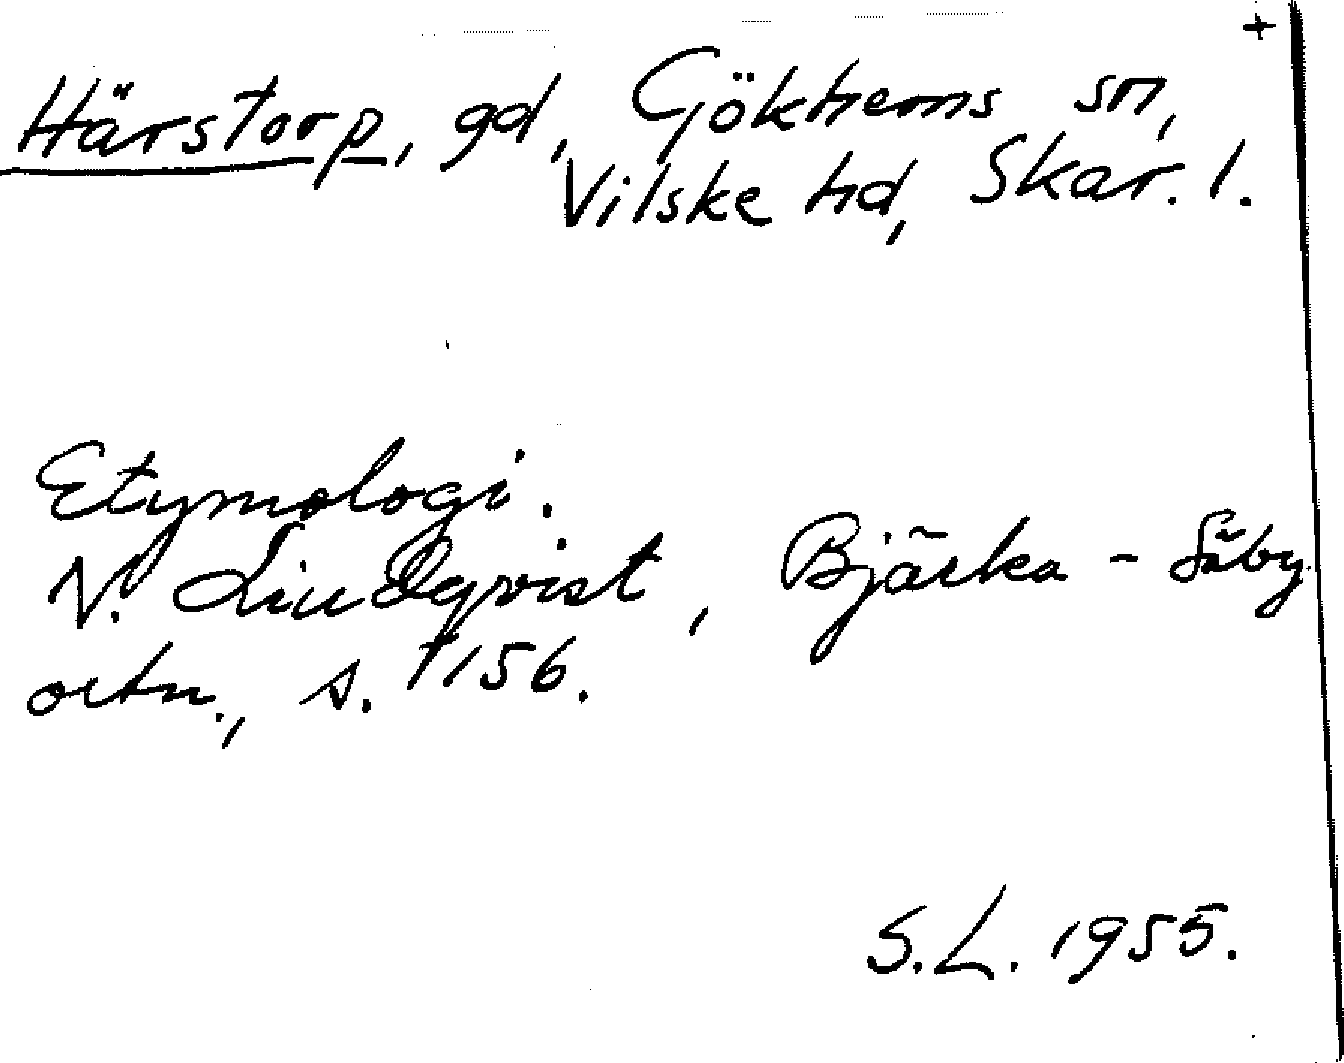 +
Härstorp, gd, Gökhems sn,
Vilske hd, Skar. l.
Etymologi.
N. Lindqvist, Bjärka-Säby
ortn., s. †156.
S.L. 1955.